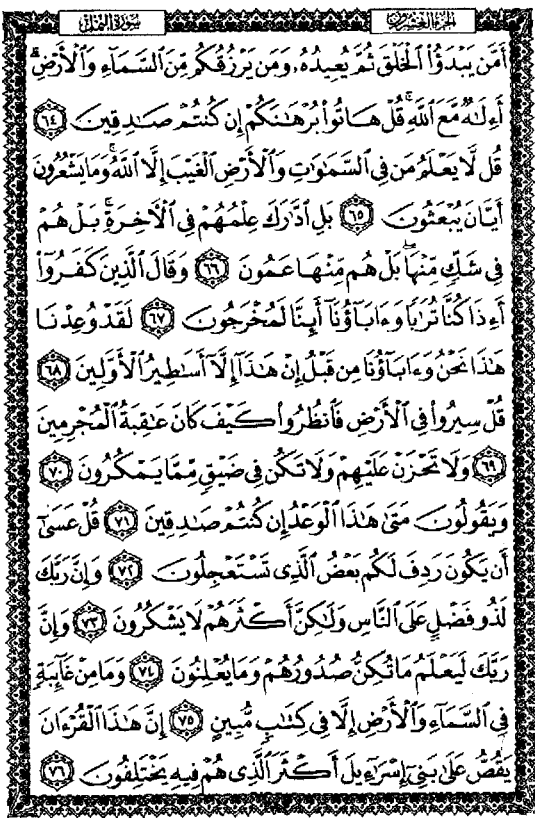 الجزء العشرون
سورة النمل
أَمَّن يَبْدَؤُا۟ ٱلْخَلْقَ ثُمَّ يُعِيدُهُۥ وَمَن يَرْزُقُكُم مِّنَ ٱلسَّمَآءِ وَٱلْأَرْضِ ۗ
أَءِلَـٰهٌ مَّعَ ٱللَّهِ ۚ قُلْ هَاتُوا۟ بُرْهَـٰنَكُمْ إِن كُنتُمْ صَـٰدِقِينَ ﴿٦٤﴾
قُل لَّا يَعْلَمُ مَن فِى ٱلسَّمَـٰوَٰتِ وَٱلْأَرْضِ ٱلْغَيْبَ إِلَّا ٱللَّهُ ۚ وَمَا يَشْعُرُونَ
أَيَّانَ يُبْعَثُونَ ﴿٦٥﴾ بَلِ ٱدَّٰرَكَ عِلْمُهُمْ فِى ٱلْـَٔاخِرَةِ ۚ بَلْ هُمْ
فِى شَكٍّ مِّنْهَا ۖ بَلْ هُم مِّنْهَا عَمُونَ ﴿٦٦﴾ وَقَالَ ٱلَّذِينَ كَفَرُوٓا۟
أَءِذَا كُنَّا تُرَٰبًا وَءَابَآؤُنَآ أَئِنَّا لَمُخْرَجُونَ ﴿٦٧﴾ لَقَدْ وُعِدْنَا
هَـٰذَا نَحْنُ وَءَابَآؤُنَا مِن قَبْلُ إِنْ هَـٰذَآ إِلَّآ أَسَـٰطِيرُ ٱلْأَوَّلِينَ ﴿٦٨﴾
قُلْ سِيرُوا۟ فِى ٱلْأَرْضِ فَٱنظُرُوا۟ كَيْفَ كَانَ عَـٰقِبَةُ ٱلْمُجْرِمِينَ
﴿٦٩﴾ وَلَا تَحْزَنْ عَلَيْهِمْ وَلَا تَكُن فِى ضَيْقٍ مِّمَّا يَمْكُرُونَ ﴿٧٠﴾
وَيَقُولُونَ مَتَىٰ هَـٰذَا ٱلْوَعْدُ إِن كُنتُمْ صَـٰدِقِينَ ﴿٧١﴾ قُلْ عَسَىٰٓ
أَن يَكُونَ رَدِفَ لَكُم بَعْضُ ٱلَّذِى تَسْتَعْجِلُونَ ﴿٧٢﴾ وَإِنَّ رَبَّكَ
لَذُو فَضْلٍ عَلَى ٱلنَّاسِ وَلَـٰكِنَّ أَكْثَرَهُمْ لَا يَشْكُرُونَ ﴿٧٣﴾ وَإِنَّ
رَبَّكَ لَيَعْلَمُ مَا تُكِنُّ صُدُورُهُمْ وَمَا يُعْلِنُونَ ﴿٧٤﴾ وَمَا مِنْ غَآئِبَةٍ
فِى ٱلسَّمَآءِ وَٱلْأَرْضِ إِلَّا فِى كِتَـٰبٍ مُّبِينٍ ﴿٧٥﴾ إِنَّ هَـٰذَا ٱلْقُرْءَانَ
يَقُصُّ عَلَىٰ بَنِىٓ إِسْرَٰٓءِيلَ أَكْثَرَ ٱلَّذِى هُمْ فِيهِ يَخْتَلِفُونَ ﴿٧٦﴾